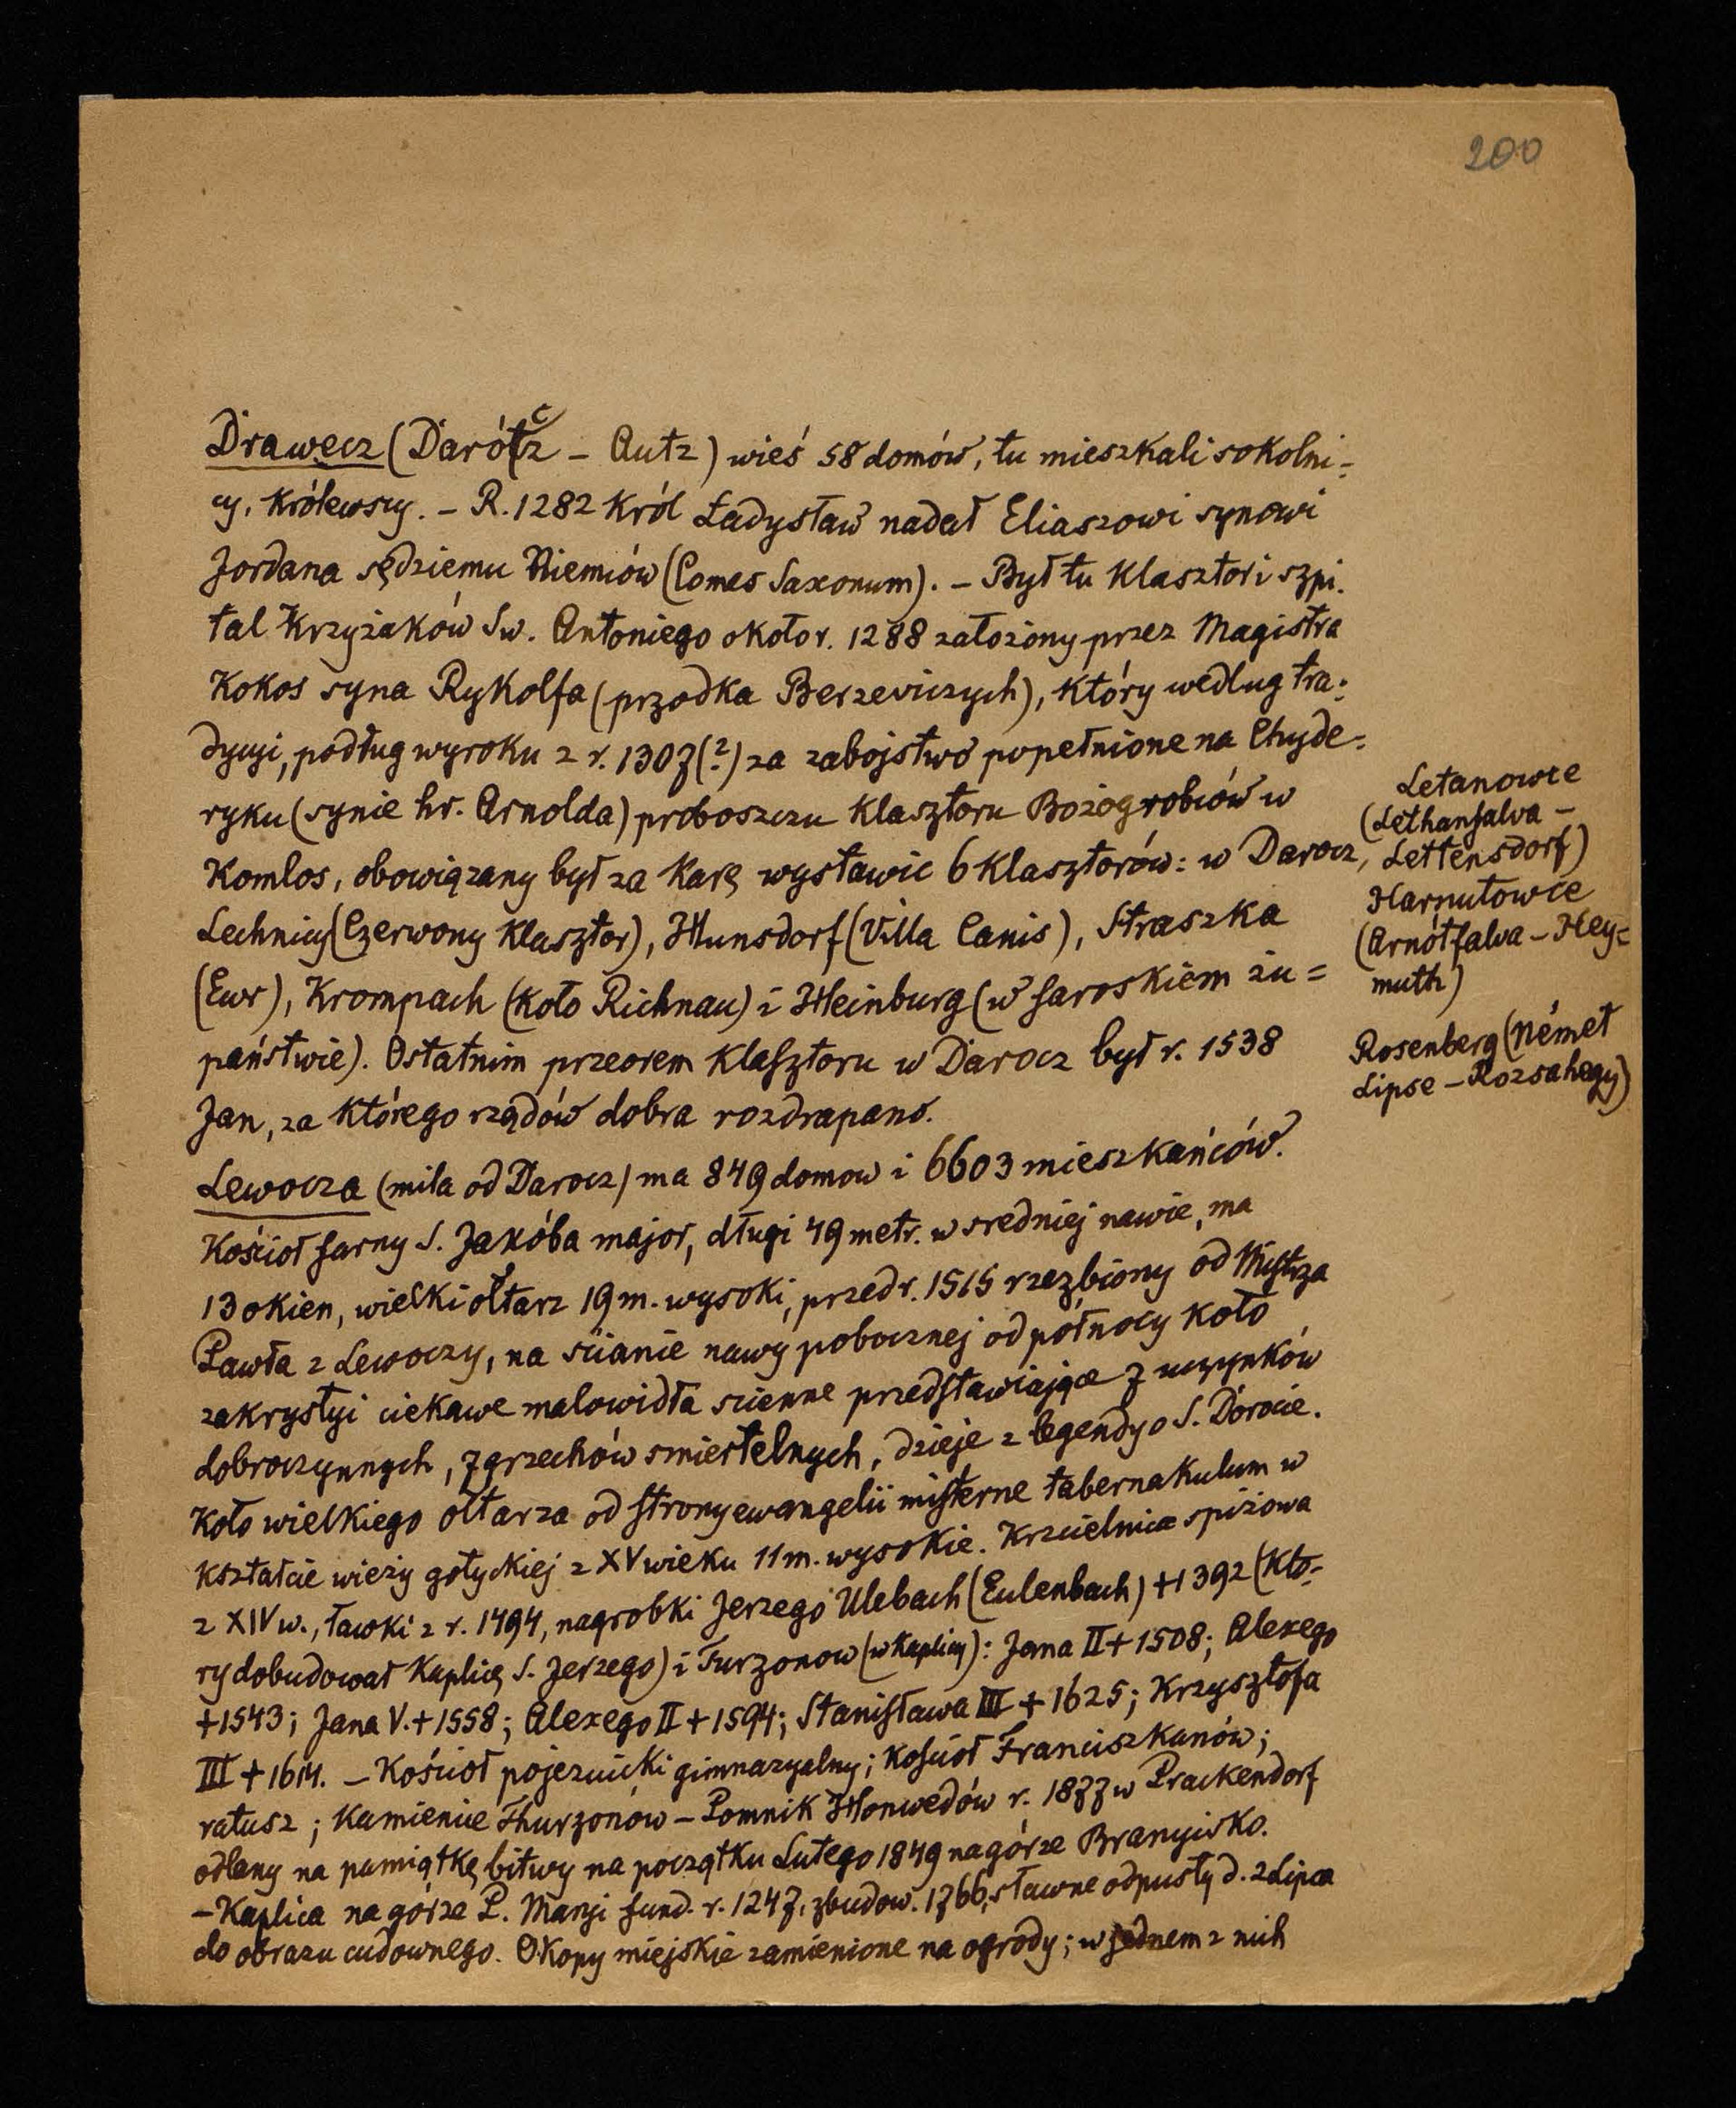 200
Drawecz (Darócz – Autz) wieś 58 domów, tu mieszkali sokolni-
cy, Królewscy. – R. 1282 Król Ładysław nadał Eliaszowi synowi
Jordana sędziemu Niemców (Comes Saxonum). – Był tu Klasztor i szpi-
tal Krzyżaków Sw. Antoniego około r. 1288 założony przez Magistra
Kokos syna Rykolfa (przodka Berzeviczych), który według tra-
dycyi, podług wyroku z r. 1307(?) za zabojstwo popełnione na Chyde-
ryku (synie hr. Arnolda) proboszczu Klasztoru Bożogrobców w
Komlos, obowiązany był za Karę wystawic 6 Klasztorów: w Darocz,
Lechnicy (Czerwony Klasztor), Hunsdorf (Villa Canis), Straszka
(Ewr), Krompach (Koło Richnau) i Heinburg (w saroskiem żu=
państwie). Ostatnim przeorem Klasztoru w Darocz był r. 1538
Jan, za Którego rządów dobra rozdrapano.
Lewocza (mila od Darocz) ma 849 domow i 6603 mieszkańców.
Kościoł farny S. Jakóba major, długi 49 metr. w sredniej nawie, ma
13 okien, wielki ołtarz 19 m. wysoki, przed r. 1515 rzezbiony od Mistrza
Pawła z Lewoczy, na scianie nawy pobocznej od północy Koło
zakrystyi ciekawe malowidła scienne przedstawiające 7 uczynków
dobroczynnych, 7 grzechów smiertelnych, dzieje z legendy o S. Dorocie.
Koło wielkiego ołtarza od strony ewangelii misterne tabernakulum w
Kształcie wieży gotyckiej z XV wieku 11 m. wysokie. Krzcielnica spiżowa
z XIV w., ławki z r. 1494, nagrobki Jerzego Ulebach (Eulenbach) +1392 (Któ-
ry dobudował Kaplicę S. Jerzego) i Turzonow (w Kaplicy): Jana II +1508; Alexego
+1543; Jana V. +1558; Alexego II +1594; Stanisława III +1625; Krzysztofa
III +1614. – Kościoł pojezuicki gimnazyalny; Kościoł Franciszkanów;
ratusz; Kamienice Thurzonów – Pomnik Honwedów r. 1877 w Prackendorf
odlany na pamiątkę bitwy na początku Lutego 1849 na górze Branyisko.
– Kaplica na górze P. Maryi fund. r. 1247, zbudow. 1766, sławne odpusty d. 2 Lipca
do obrazu cudownego. Okopy miejskie zamienione na ogrody; w jednem z nich
Letanowce
(Lethanfalva –
Lettensdorf)
Harnutowce
(Arnótfalva – Hey=
muth)
Rosenberg (Német
Lipse – Rozsahegy)